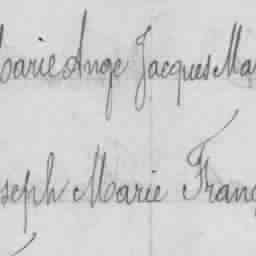 Marie Ange Jacques Ma
seph Marie Franç